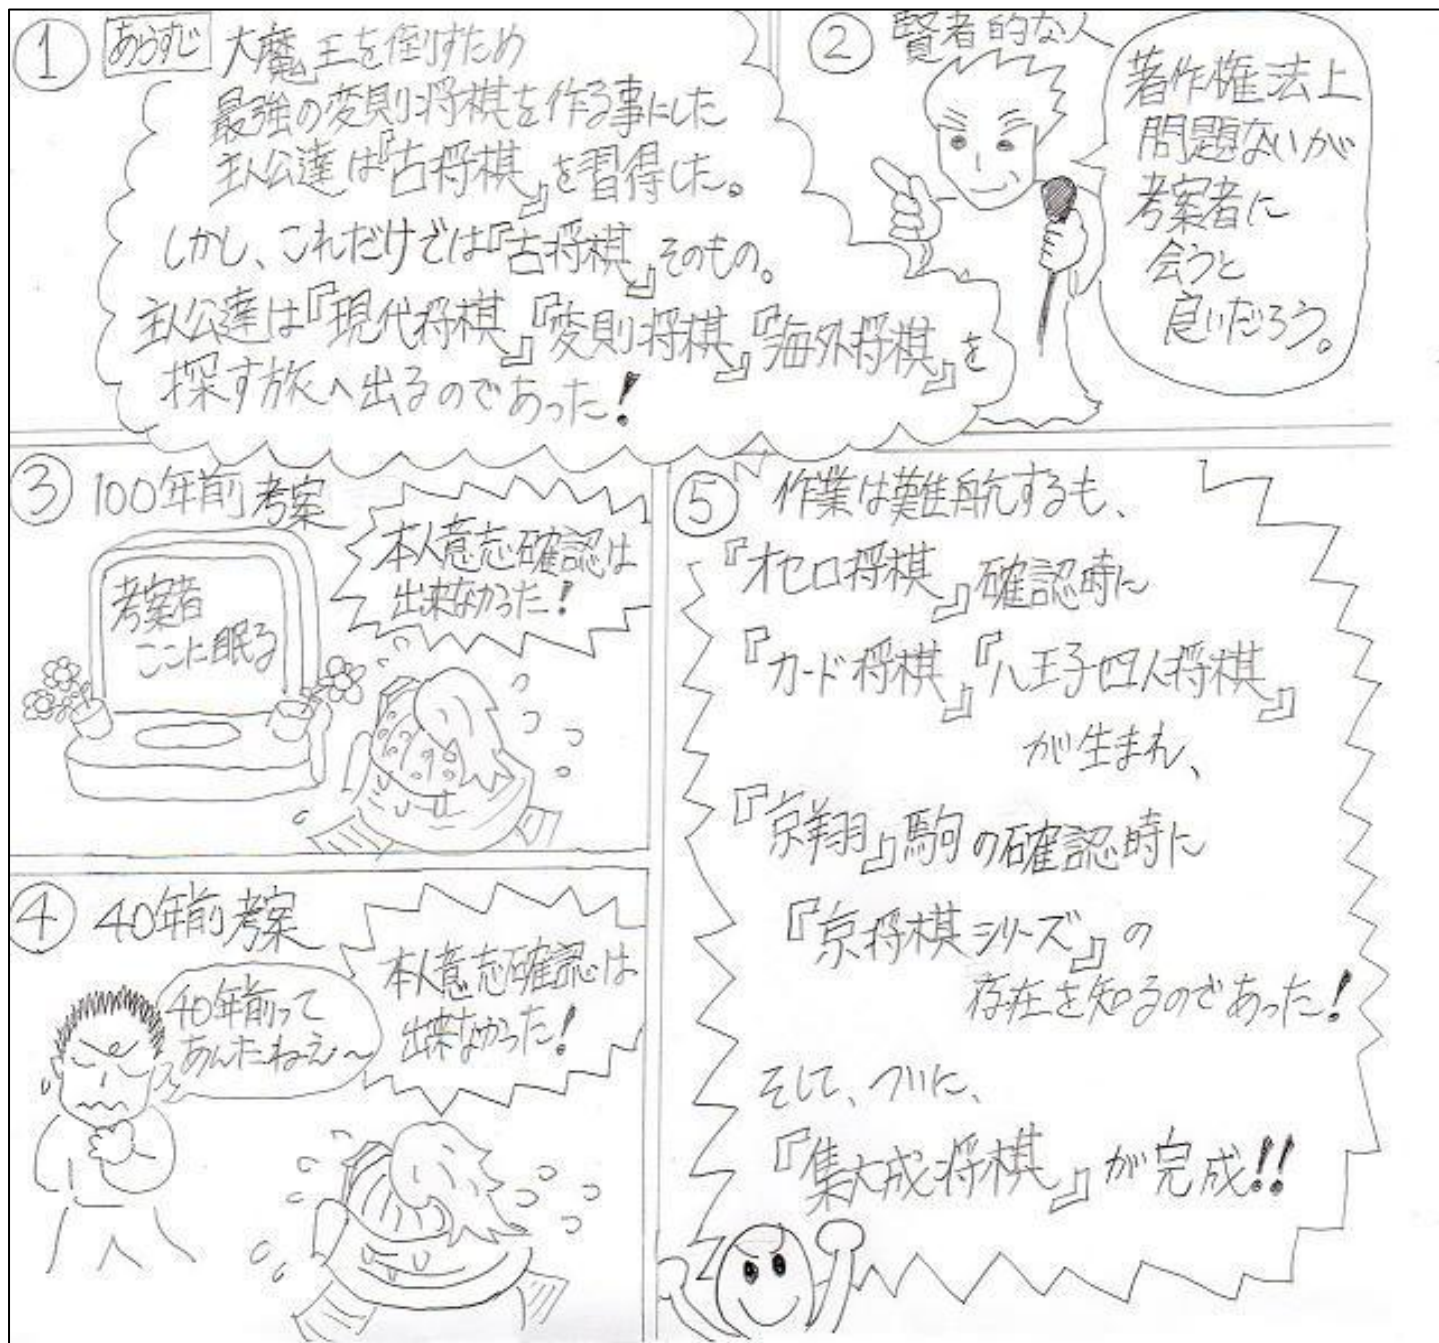 ①
あらすじ
大魔王を倒すため
最強の変則将棋を作る事にした
主人公達は『古将棋』を習得した。
しかし、これだけでは『古将棋』そのもの。
主人公達は『現代将棋』『変則将棋』『海外将棋』を
探す旅へ出るのであった！
② 賢者的な人
著作権法上
問題ないが
考案者に
会うと
良いだろう。
③ 100年前考案
本人意志確認は
出来なかった！
考案者
ここに眠る
④ 40年前考案
40年前って
あんたねえ～
本人意志確認は
出来なかった！
⑤ 作業は難航するも、
『オセロ将棋』確認時に
『カード将棋』『八王子四人将棋』
が生まれ、
『京翔』駒の確認時に
『京将棋シリーズ』の
存在を知るのであった！
そして、ついに、
『集大成将棋』が完成!!